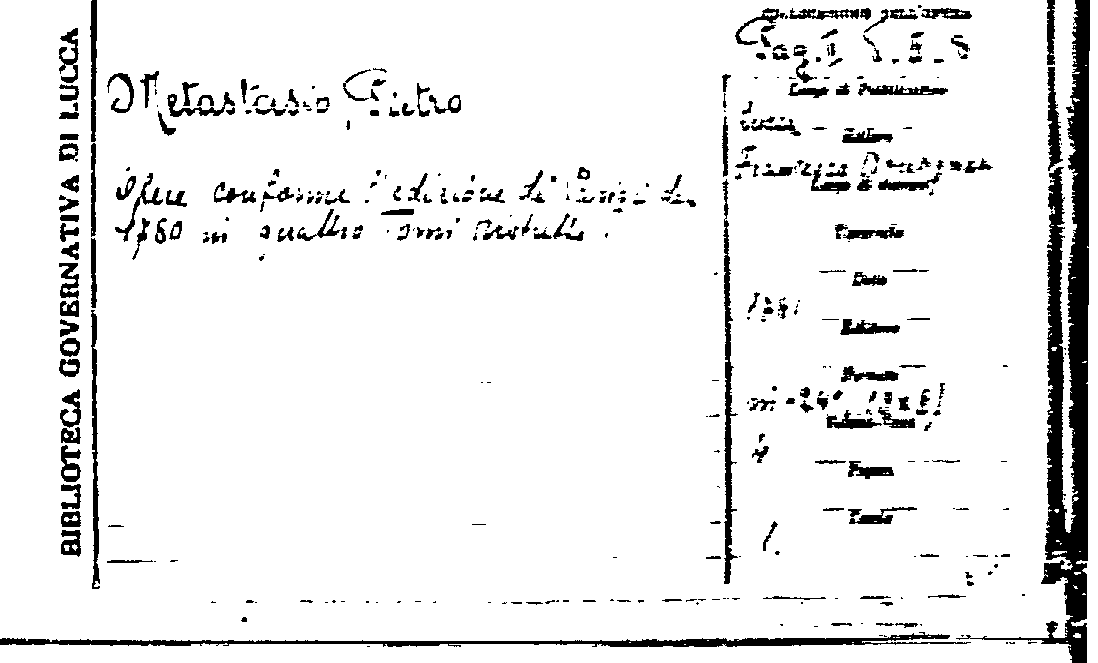 BIBLIOTECA GOVERNATIVA DI LUCCA
Metastasio, Pietro
Opere conforme l'edizione di Parigi del
1780 in quattro Tomi ristretta.
COLLOCAZIONE DELL'OPERA
Pag.
Luogo di Pubblicazione
Lucca
Editore
Francesco
Luogo di stampa
Tipografia
Data
Edizione
Formato
in-24°
4
Pagine
Tavole
1.